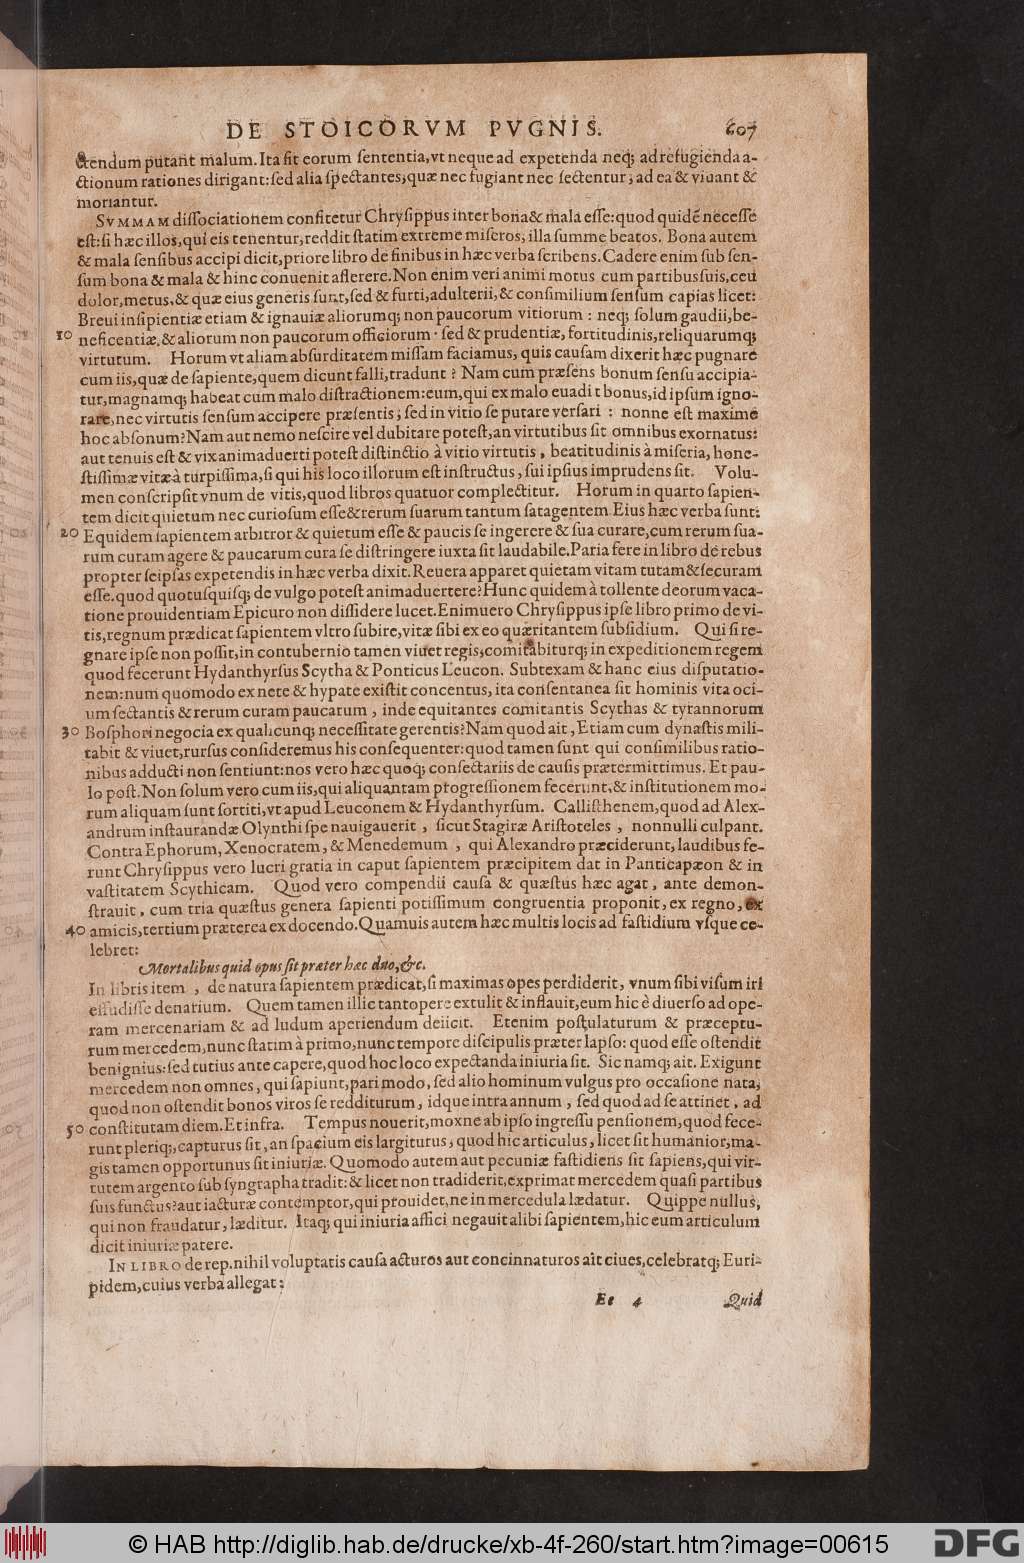 DE STOICORVM PVGNIS. 607
ctendum putant malum. Ita fit eorum ſententia, vt neque ad expetenda neq; ad refugienda a-
ctionum rationes dirigant: ſed alia ſpectantes, quæ nec fugiant nec ſectentur, ad ea & viuant &
moriantur.
SVMMAM diſſociationem confitetur Chryſippus inter bona & mala eſſe: quod quidẽ neceſſe
eſt: ſi hæc illos, qui eis tenentur, reddit ſtatim extreme miſeros, illa ſumme beatos. Bona autem
& mala ſenſibus accipi dicit, priore libro de finibus in hæc verba ſcribens. Cadere enim ſub ſen-
ſum bona & mala & hinc conuenit aſſerere. Non enim veri animi motus cum partibus ſuis, ceu
dolor, metus, & quæ eius generis ſunt, ſed & furti, adulterii, & conſimilium ſenſum capias licet:
Breui inſipientiæ etiam & ignauiæ aliorumq; non paucorum vitiorum : neq; ſolum gaudii, be-
10 neficentiæ, & aliorum non paucorum officiorum · ſed & prudentiæ, fortitudinis, reliquarumq;
virtutum. Horum vt aliam abſurditatem miſſam faciamus, quis cauſam dixerit hæc pugnare
cum iis, quæ de ſapiente, quem dicunt falli, tradunt ? Nam cum præſens bonum ſenſu accipia-
tur, magnamq; habeat cum malo diſtractionem: eum, qui ex malo euadit bonus, id ipſum igno-
rare, nec virtutis ſenſum accipere præſentis; ſed in vitio ſe putare verſari : nonne eſt maxime
hoc abſonum? Nam aut nemo neſcire vel dubitare poteſt, an virtutibus ſit omnibus exornatus:
aut tenuis eſt & vix animaduerti poteſt diſtinctio à vitio virtutis, beatitudinis à miſeria, hone-
ſtiſſimæ vitæ à turpiſſima, ſi qui his loco illorum eſt inſtructus, ſui ipſius imprudens ſit. Volu-
men conſcripſit vnum de vitis, quod libros quatuor complectitur. Horum in quarto ſapien-
tem dicit quietum nec curioſum eſſe & rerum ſuarum tantum ſatagentem Eius hæc verba ſunt:
20 Equidem ſapientem arbitror & quietum eſſe & paucis ſe ingerere & ſua curare, cum rerum ſua-
rum curam agere & paucarum cura ſe diſtringere iuxta ſit laudabile. Paria fere in libro de rebus
propter ſeipſas expetendis in hæc verba dixit. Reuera apparet quietam vitam tutam & ſecuram
eſſe. quod quotuſquiſq; de vulgo poteſt animaduertere? Hunc quidem à tollente deorum vaca-
tione prouidentiam Epicuro non diſſidere lucet. Enimuero Chryſippus ipſe libro primo de vi-
tis, regnum prædicat ſapientem vltro ſubire, vitæ ſibi ex eo quæritantem ſubſidium. Qui ſi re-
gnare ipſe non poſſit, in contubernio tamen viuet regis, comitabiturq; in expeditionem regem
quod fecerunt Hydanthyrſus Scytha & Ponticus Leucon. Subtexam & hanc eius diſputatio-
nem: num quomodo ex nete & hypate exiſtit concentus, ita conſentanea ſit hominis vita oci-
um ſectantis & rerum curam paucarum, inde equitantes comitantis Scythas & tyrannorum
30 Boſphori negocia ex qualicunq; neceſſitate gerentis? Nam quod ait, Etiam cum dynaſtis mili-
tabit & viuet, rurſus conſideremus his conſequenter: quod tamen ſunt qui conſimilibus ratio-
nibus adducti non ſentiunt: nos vero hæc quoq; conſectariis de cauſis prætermittimus. Et pau-
lo poſt. Non ſolum vero cum iis, qui aliquantam progreſſionem fecerunt, & inſtitutionem mo-
rum aliquam ſunt ſortiti, vt apud Leuconem & Hydanthyrſum. Calliſthenem, quod ad Alex-
andrum inſtaurandæ Olynthi ſpe nauigauerit, ſicut Stagiræ Ariſtoteles, nonnulli culpant.
Contra Ephorum, Xenocratem, & Menedemum, qui Alexandro præciderunt, laudibus fe-
runt Chryſippus vero lucri gratia in caput ſapientem præcipitem dat in Panticapæon & in
vaſtitatem Scythicam. Quod vero compendii cauſa & quæſtus hæc agat, ante demon-
ſtrauit, cum tria quæſtus genera ſapienti potiſſimum congruentia proponit, ex regno, ex
40 amicis, tertium præterea ex docendo. Quamuis autem hæc multis locis ad faſtidium vſque ce-
lebret:
Mortalibus quid opus ſit præter hæc duo, &c.
In libris item, de natura ſapientem prædicat, ſi maximas opes perdiderit, vnum ſibi viſum iri
effudiſſe denarium. Quem tamen illic tantopere extulit & inflauit, eum hic è diuerſo ad ope-
ram mercenariam & ad ludum aperiendum deiicit. Etenim poſtulaturum & præceptu-
rum mercedem, nunc ſtatim à primo, nunc tempore diſcipulis præter lapſo: quod eſſe oſtendit
benignius: ſed tutius ante capere, quod hoc loco expectanda iniuria ſit. Sic namq; ait. Exigunt
mercedem non omnes, qui ſapiunt, pari modo, ſed alio hominum vulgus pro occaſione nata,
quod non oſtendit bonos viros ſe redditurum, idque intra annum, ſed quod ad ſe attinet, ad
50 conſtitutam diem. Et infra. Tempus nouerit, moxne ab ipſo ingreſſu penſionem, quod fece-
runt pleriq;, capturus ſit, an ſpacium eis largiturus, quod hic articulus, licet ſit humanior, ma-
gis tamen opportunus ſit iniuriæ. Quomodo autem aut pecuniæ faſtidiens ſit ſapiens, qui vir-
tutem argento ſub ſyngrapha tradit: & licet non tradiderit, exprimat mercedem quaſi partibus
ſuis functus? aut iacturæ contemptor, qui prouidet, ne in mercedula lædatur. Quippe nullus,
qui non fraudatur, læditur. Itaq; qui iniuria affici negauit alibi ſapientem, hic eum articulum
dicit iniuriæ patere.
IN LIBRO de rep. nihil voluptatis cauſa acturos aut concinnaturos ait ciues, celebratq; Euri-
pidem, cuius verba allegat:
Ee 4 Quid
© HAB http://diglib.hab.de/drucke/xb-4f-260/start.htm?image=00615
DFG